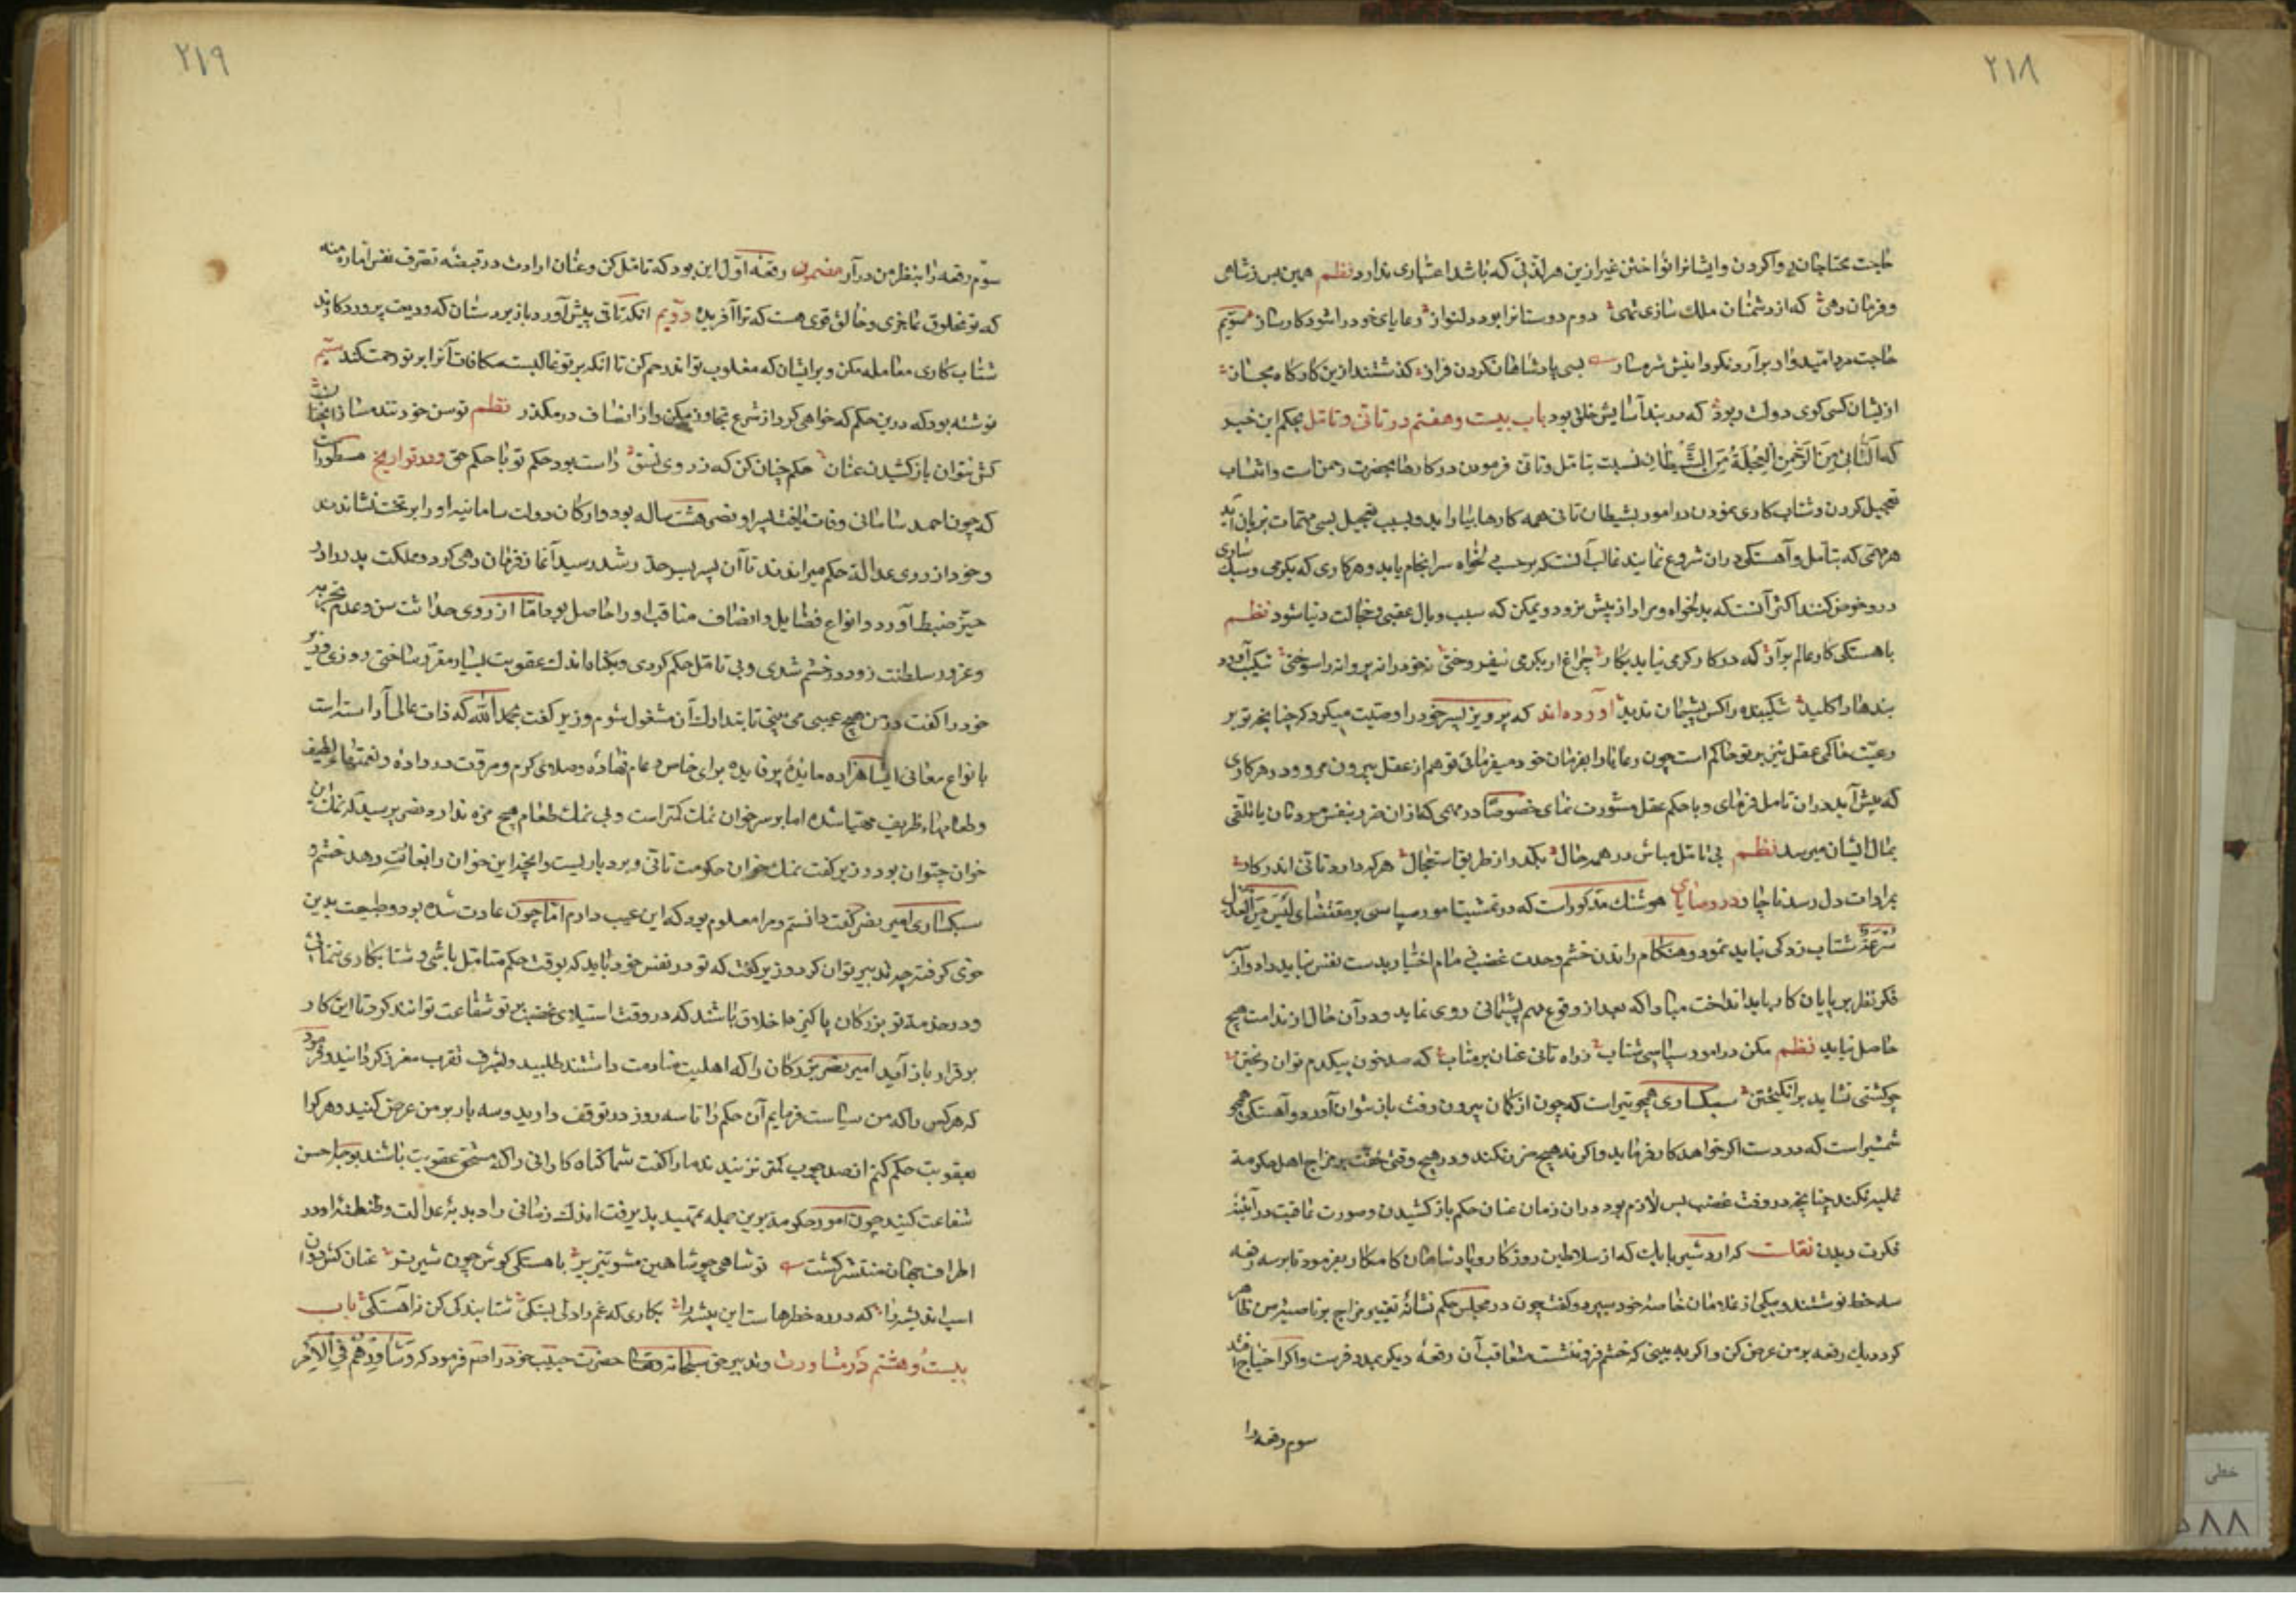 ۲۱۸
حاجت محتاجان روا کردن و ایشانرا نواختن غیر ازین هر لذتی که باشد اعتباری ندارد نظم همین بس ز شاهی
و فرمان دهی که از دشمنان ملک سازی تهی دوم دوستانرا بود دلنواز رعایای خود را شود کارساز سیوم
حاجت هر امیدوار برآرد نکرداندش شرمسار بسی پادشاهان کردن فراز کذشتند ازین کارکاه مجاز
ازیشان کسی کوی دولت ربود که در بند آسایش خلق بود باب بیست و هفتم در تانی و تامل بحکم این خبر
که التأنی من الرحمن العجلة من الشیطان نسبت تامل و تانی فرمودن در کارها بحضرت رحمن است و انتساب
تعجیل کردن و شتاب کاری نمودن در امور بشیطان تانی همه کارها بیاراید و بسبب تعجیل بسی مهمات بزیان آید
هر مهمی که بتامل و آهستکی در آن شروع نمایند غالب آنست که بر حسب دلخواه سرانجام یابد و هر کاری که بکرمی و سبکساری
در و خوض کنند اکثر آنست که بدلخواه و مراد از پیش نرود و یمکن که سبب وبال عقبی و خجالت دنیا شود نظم
باهستکی کار عالم برآر که در کار کرمی نیاید بکار چراغ ار بکرمی نیفروختی نه خود را نه پروانه را سوختی شکیب آورد
بندها را کلید شکیبنده را کس پشیمان ندید آورده‌اند که پرویز پسر خود را وصیت میکرد که چنانچه تو بر
رعیت حاکمی عقل نیز بر تو حاکم است چون رعایا را بفرمان خود میفرمائی تو هم از عقل بیرون مرو و در هر کاری
که پیش آید در ان تامل فرمای و با حکم عقل مشورت نمای خصوصا در مهمی که از ان ضرر بنفس مردمان یا تلفی
بمال ایشان میرسد نظم بی تامل مباش در همه حال بکذر از طریق استعجال هر که دارد تانی اندر کار
بمرادات دل رسد ناچار در وصایای هوشنک مذکور است که در تمشیت امور سیاسی بر مقتضای لیس من العدل
سرعة شتاب زدکی نباید نمود و هنکام راندن خشم و حدت غضب زمام اختیار بدست نفس نباید داد و از سر
فکر نظر بر پایان کار باید انداخت مبادا که بعد از وقوع مهم پشیمانی روی نماید و در آن حال از ندامت هیچ
حاصل نیاید نظم مکن در امور سیاسی شتاب ز راه تانی عنان بر متاب که صد خون بیکدم توان ریختن
چو کشتی نشاید برانکیختن سبکساری همچو تیر است که چون از کمان بیرون رفت باز نتوان آورد و آهستکی همچو
شمشیر است که در دست اکر خواهد کار بفرماید و اکر نه هیچ ضرر نکند و در هیچ وقتی خفت بر مزاج اهل حکومة
غلبه نکند چنانچه در وقت غضب پس لازم بود در ان زمان عنان حکم باز کشیدن و صورت عاقبت در آینۀ
فکرت دیدن نقلست که اردشیر بابک که از سلاطین روزکار و پادشاهان کامکار بفرمود تا بر سه رقعه
سه خط نوشتند و بیکی از غلامان خاصۀ خود سپرد و کفت چون در مجلس حکم نشانۀ تغییر مزاج بر ناصیۀ من ظاهر
کردد یک رقعه بر من عرض کن و اکر به بینی که خشم فرو ننشست متعاقب آن رقعۀ دیکر بمدد فرست و اکر احتیاج افتد
سوم رقعه را
۲۱۹
سوم رقعه را بنظر من درآر مضمون رقعۀ اول این بود که تامل کن و عنان ارادت در قبضۀ تصرف نفس اماره منه
که تو مخلوق عاجزی و خالق قوی هست که ترا آفریده دویم انکه تانی پیش آور و با زیردستان که ودیعت پروردکارند
شتاب کاری معامله مکن و بر ایشان که مغلوب تو اند رحم کن تا انکه بر تو غالبست مکافات آنرا بر تو رحمت کند سیم
نوشته بود که درین حکم که خواهی کرد از شرع تجاوز مکن و از انصاف در مکذر نظم توسن خود تند مساز انچنان
کش نتوان باز کشیدن عنان حکم چنان کن که ز روی نسق راست بود حکم تو با حکم حق و در تواریخ مسطور است
که چون احمد سامانی وفات یافت پسر او نصر هشت ساله بود و ارکان دولت سامانیه او را بر تخت نشاندند
و خود از روی عدالة حکم میراندند تا آن پسر بسر حد رشد رسید آغاز فرمان دهی کرد و مملکت پدر را در
حیز ضبط آورد و انواع فضایل و انصاف مناقب او را حاصل بود اما از روی حداثت سن و عدم تجربه
و غرور سلطنت زود در خشم شدی و بی تامل حکم کردی و بکناه اندک عقوبت بسیار مقرر ساختی روزی وزیر
خود را کفت در من هیچ عیبی می بینی تا بتدارک آن مشغول شوم وزیر کفت بحمد الله که ذات عالی آراسته است
بانواع معانی ایشاهزاده مایدۀ پر فایده برای خاص و عام نهادۀ و صلای کرم و مروت در دادۀ و نعمتهاء لطیف
و طعامهاء ظریف مهیا شده اما بر سر خوان نمک کمتر است و بی نمک طعام هیچ مزه ندارد نصر پرسید که نمک این
خوان چتوان بود وزیر کفت نمک خوان حکومت تانی و بردباریست و انچه این خوان را بغایت دهد خشم و
سبکساری امیر نصر کفت دانستم و مرا معلوم بود که این عیب دارم اما چون عادت شده بود و طبیعت بدین
خوی کرفته چه تدبیر توان کرد وزیر کفت که تو در نفس خود باید که بوقت حکم متامل باشی و شتابکاری ننمائی
و در خدمة تو بزرکان پاکیزه اخلاق باشند که در وقت استیلای غضب بر تو شفاعت توانند کرد تا این کار
بر قرار باز آید امیر نصر بزرکان را که اهلیت منادمت داشتند طلبید و بشرف تقرب معزز کردانید و فرمود
که هر کس را که من سیاست فرمایم آن حکم را تا سه روز در توقف دارید و سه بار بر من عرض کنید و هر کرا
بعقوبت حکم کنم از صد چوب کمتر نزنید ندما را کفت شما کناه کارانی را که مستحق عقوبت باشند بوجه احسن
شفاعت کنید چون امور حکومة بوین جمله تمهید پذیرفت اندک زمانی را دبدبۀ عدالت و طنطنۀ او در
اطراف جهان منتشر کشت تو شاهی چو شاهین مشو تیز پر باهستکی کوش چون شیر نر عنان کش دوان
اسب اندیشه را که در ره خطرهاست این پیشه را بکاری که غم را دلی بستکی شتابندکی کن نه آهستکی باب
بیست و هشتم در مشاورت و تدبیر حق سبحانه و تعالی حضرت حبیب خود را صلعم فرمود که و شاورهم فی الامر
خطی
۵۸۸